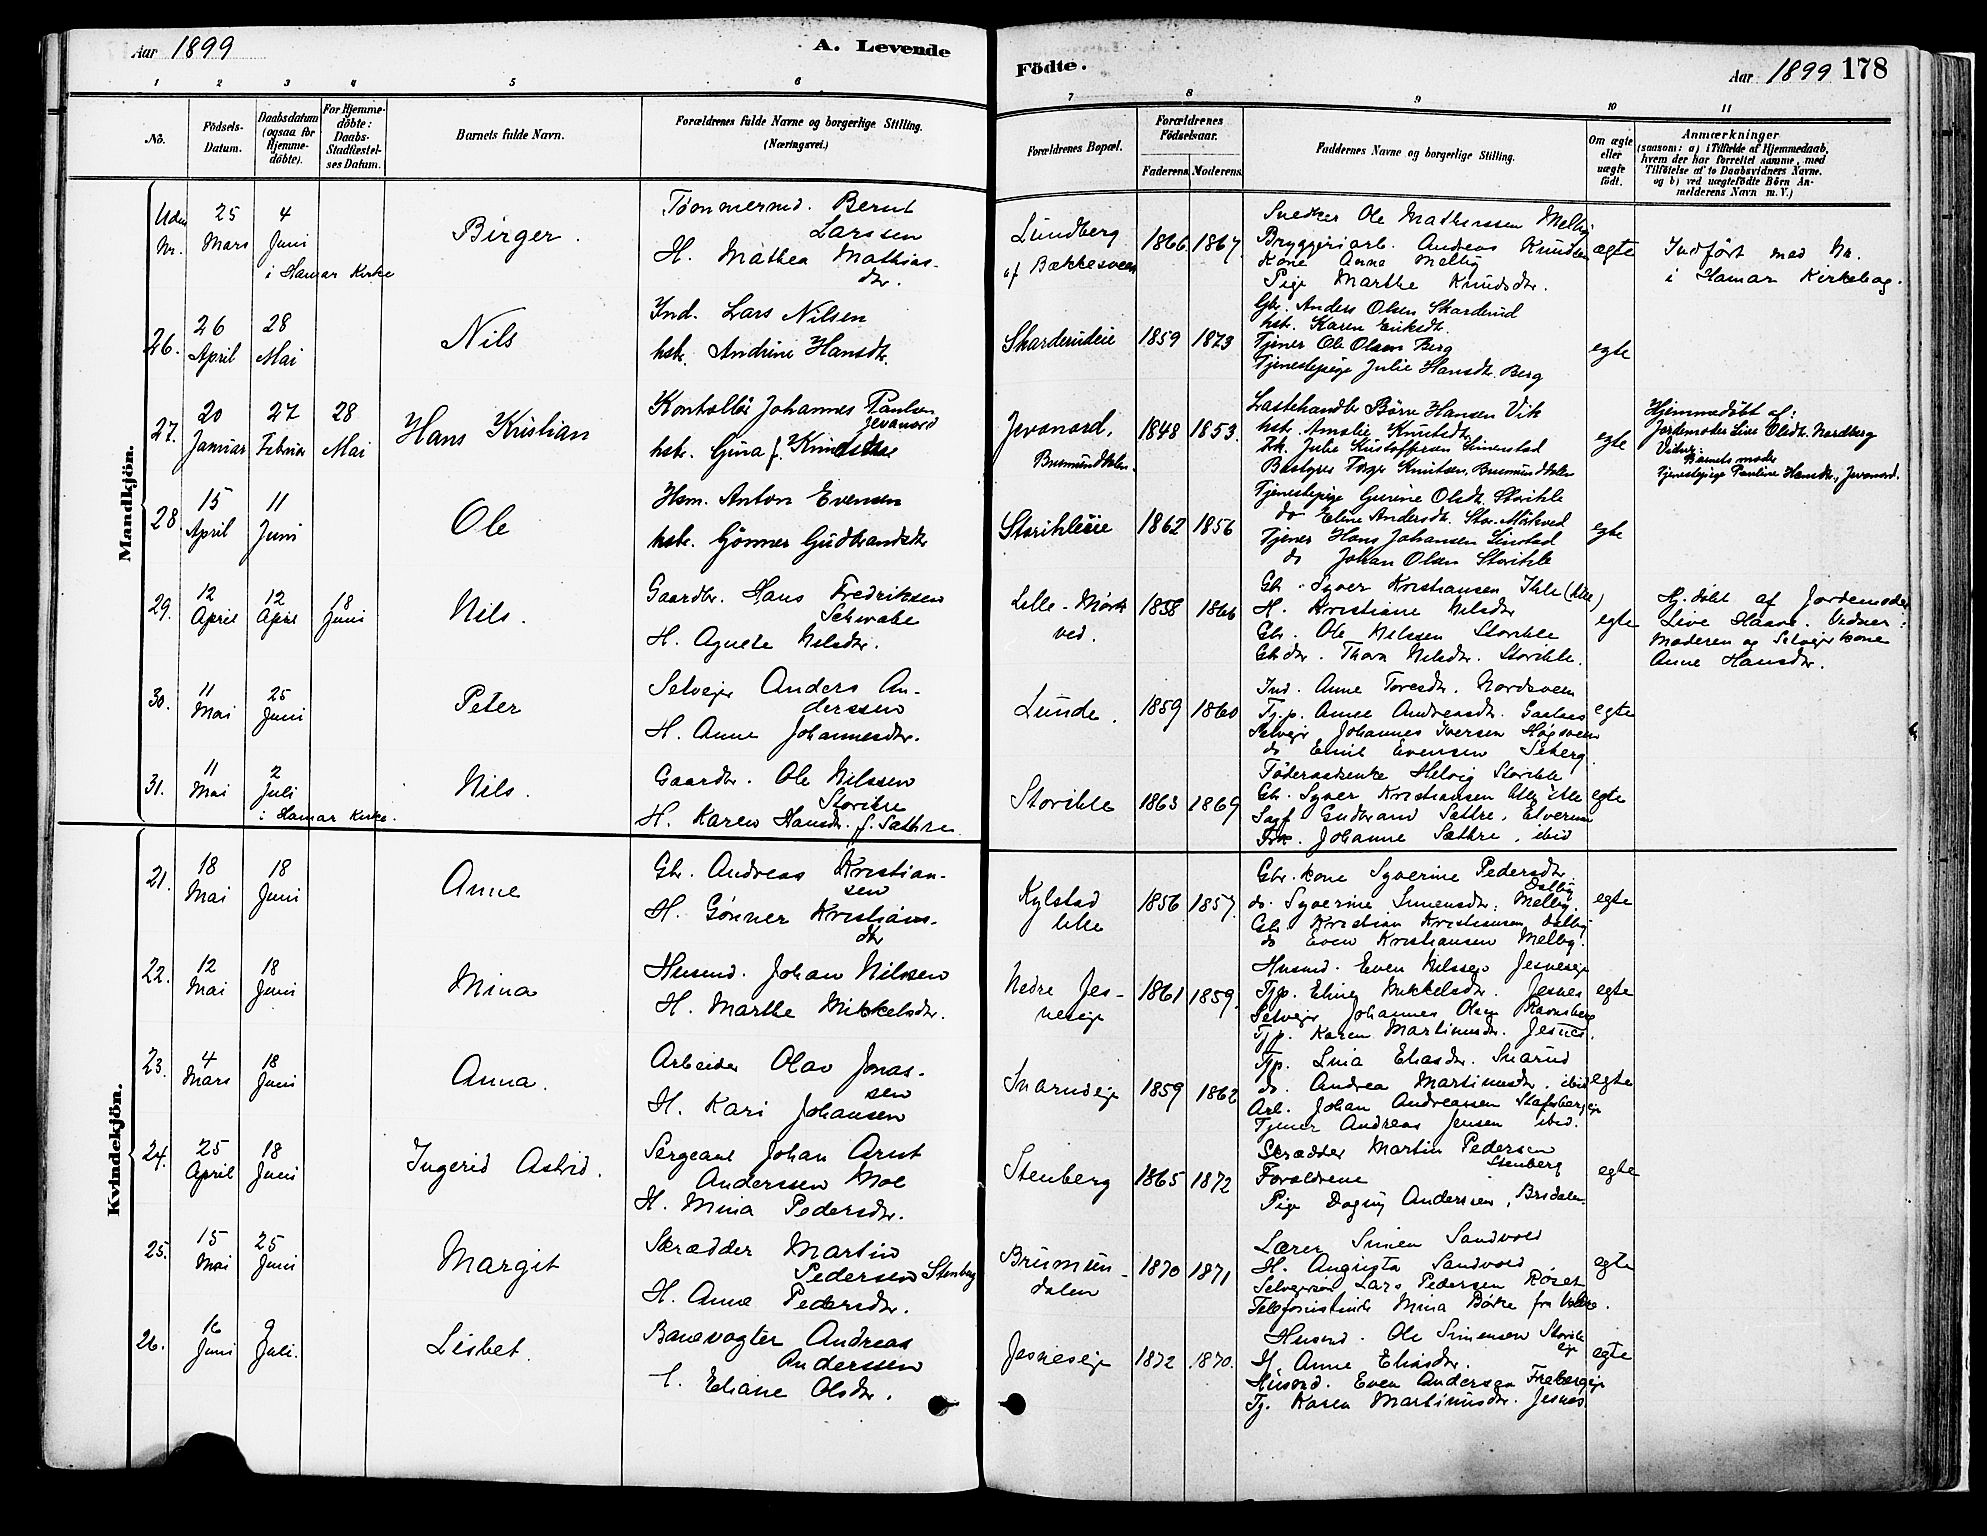 Aar 1899
A. Levende
1 2 3 4 5 6
No.
Födsels-Datum.
Daabsdatum (ogsaa for Hjemme-döbte).
For Hjemme-döbte: Daabs-Stadfæstel-ses Datum.
Barnets fulde Navn.
Forældrenes fulde Navne og borgerlige Stilling. (Næringsvei.)
Födte.
Aar 1899 178
7 8 9 10 11
Forældrenes Bopæl.
Forældrenes Födselsaar.
Faderens Moderens
Faddernes Navne og borgerlige Stilling.
Om ægte eller uægte født.
Anmærkninger
(saasom: a) i Tilfælde af Hjemmedaab,
hvem der har forrettet samme, med
Tilföielse af to Daabsvidners Navne.
og b) ved uægtefödte Börn An-
melderens Navn m. V.)
Mandkjön.
Uden Nr. 25 Mars 4 Juni i Hamar Kirke
Birger.
Tömmermd. Bernt
Larssen
H. Mathea Mathias-
dtr.
Lundberg
af Bækkesveen
1866 1867
Snedker Ole Mathissen Melby
Bryggeriarb. Andreas Knudsen
Kone Anna Melby
Pige Marthe Knudsdtr.
ægte
Indført med No.
i Hamar Kirkebog.
26. 26 April 28 Mai
Nils
Ind. Lars Nilsen
hstr. Andrine Hansdtr.
Skarderudeie 1859 1873
Gbr. Anders Olsen Skarderud
hst. Karen Eriksdtr.
Tjener Ole Olsen Berg
Tjenestepige Julie Hansdtr. Berg
egte
27. 20 Januar 27 Februar 28 Mai
Hans Kristian
Kontrollör Johannes Paulsen
Jevanord
hstr. Gina f. Knudsdtr
Jevanord,
Brumunddalen.
1848 1853.
Lastehandler Börre Hansen Vik
hst. Amalie Knutsdtr
Frk. Julie Kristoffersen Simenstad
Bestyrer Torger Knutsen, Brumunddalen
egte
Hjemmedöbt af:
Jordemoder Live Olsdtr. Nordberg
Vidner:
Barnets moder
Tjenestepige Pauline Hansdtr., Jevanord.
28 15 April 11 Juni
Ole
Hsm. Anton Evensen
hstr. Gönner Gudbrandsdtr
Storihleeie 1862 1856
Tjenestepige Gurine Olsdtr. Storihle
do Eline Andersdtr. Stor-Mörkved
Tjener Hans Johansen Simstad
do Johan Olsen Storihle
egte
29. 12 April 12 April 18 Juni
Nils.
Gaardbr. Hans Fredriksen
Schwabe
H. Agnete Nilsdtr.
Lille-Mörk-
ved.
1858 1866
Gbr. Syver Kristiansen Ihle (lille)
H. Kristiane Nilsdtr
Gbr. Ole Nilssen Storihle
Gbdtr. Thora Nilsdtr. Storihle.
egte
Hj. döbt af Jordemoder
Live Haave. Vidner:
Moderen og Selveierkone
Anne Hansdtr.
30. 11 Mai 25 Juni
Peter
Selveier Anders An-
derssen
H. Anne Johannesdtr.
Lunde. 1859 1860
Ind. Anne Toresdtr. Nordsveen
Tj.p. Anne Andreasdtr.
Selveier Johannes Iversen Høgsveen
do Emil Evensen Seberg.
egte
31. 11 Mai 2 Juli i Hamar Kirke.
Nils.
Gaardbr. Ole Nilssen
Storihle
H. Karen Hansdtr. f. Sæthre.
Storihle 1863 1869
Föderaadsenke Helvig Storihle
Gbr. Syver Kristiansen Lilleihle
Sagf Gudbrand Sæthre, Elverum
Frk. Johanne Sæthre, ibid
egte
Kvindekjön.
21. 18 Mai 18 Juni
Anne
Gbr. Andreas Kristian-
sen
H. Gönner Kristians-
dtr
Kylstad
lille
1856 1857.
Gbr. kone Syverine Pedersdtr.
Dalby
do. Syverine Simensdtr. Melby.
Gbr. Kristian Kristiansen Dalby
do Even Kristiansen Melby.
egte
22. 12 Mai 18 Juni
Mina
Husmd. Johan Nilssen
H. Marthe Mikkelsdtr.
Nedre Jes-
neseje
1861 1859.
Husmd. Even Nilssen Jesneseje
Tjp. Eline Mikkelsdtr. Jesnes
Selveier Johannes Olsen Ravnsberg
Tjp. Karen Martinusdtr. Jesnes.
egte
23. 4 Mars 18 Juni
Anna.
Arbeider Olav Jonas-
sen
H. Kari Johansen
Snarudeje 1859 1862
Tjp. Lina Eliasdtr. Snarud
do. Andrea Martinusdtr. ibid
Arb. Johan Andreassen Stafsbergeje
Tjener Andreas Jensen ibid.
egte
24. 25 April 18 Juni
Ingerid Astrid.
Sergeant Johan Arnt
Anderssen Moe
H. Mina Pedersdtr.
Stenberg 1865 1872
Skrædder Martin Pedersen
Stenberg
Forældrene
Pige Dagny Anderssen, Brdalen
egte
25. 15 Mai 25 Juni
Margit
Skrædder Martin
Pedersen Stenberg
H. Anne Pedersdtr.
Brumun-
dalen
1870 1871
Lærer Simen Sandvold
H. Augusta Sandvold
Selveiersön Lars Pedersen Roset
Telefonistinde Mina Börke fra Valdre.
egte
26. 16 Juni 9 Juli.
Lisbet.
Banevogter Andreas
Anderssen
H. Eliane Olsdtr.
Jesneseje 1872 1870.
Husmd. Ole Simensen Storihle
eje
H. Anne Eliasdtr.
Husmd. Even Andersen Frebergeje
Tj. Karen Martinusdtr. Jesnes
egte